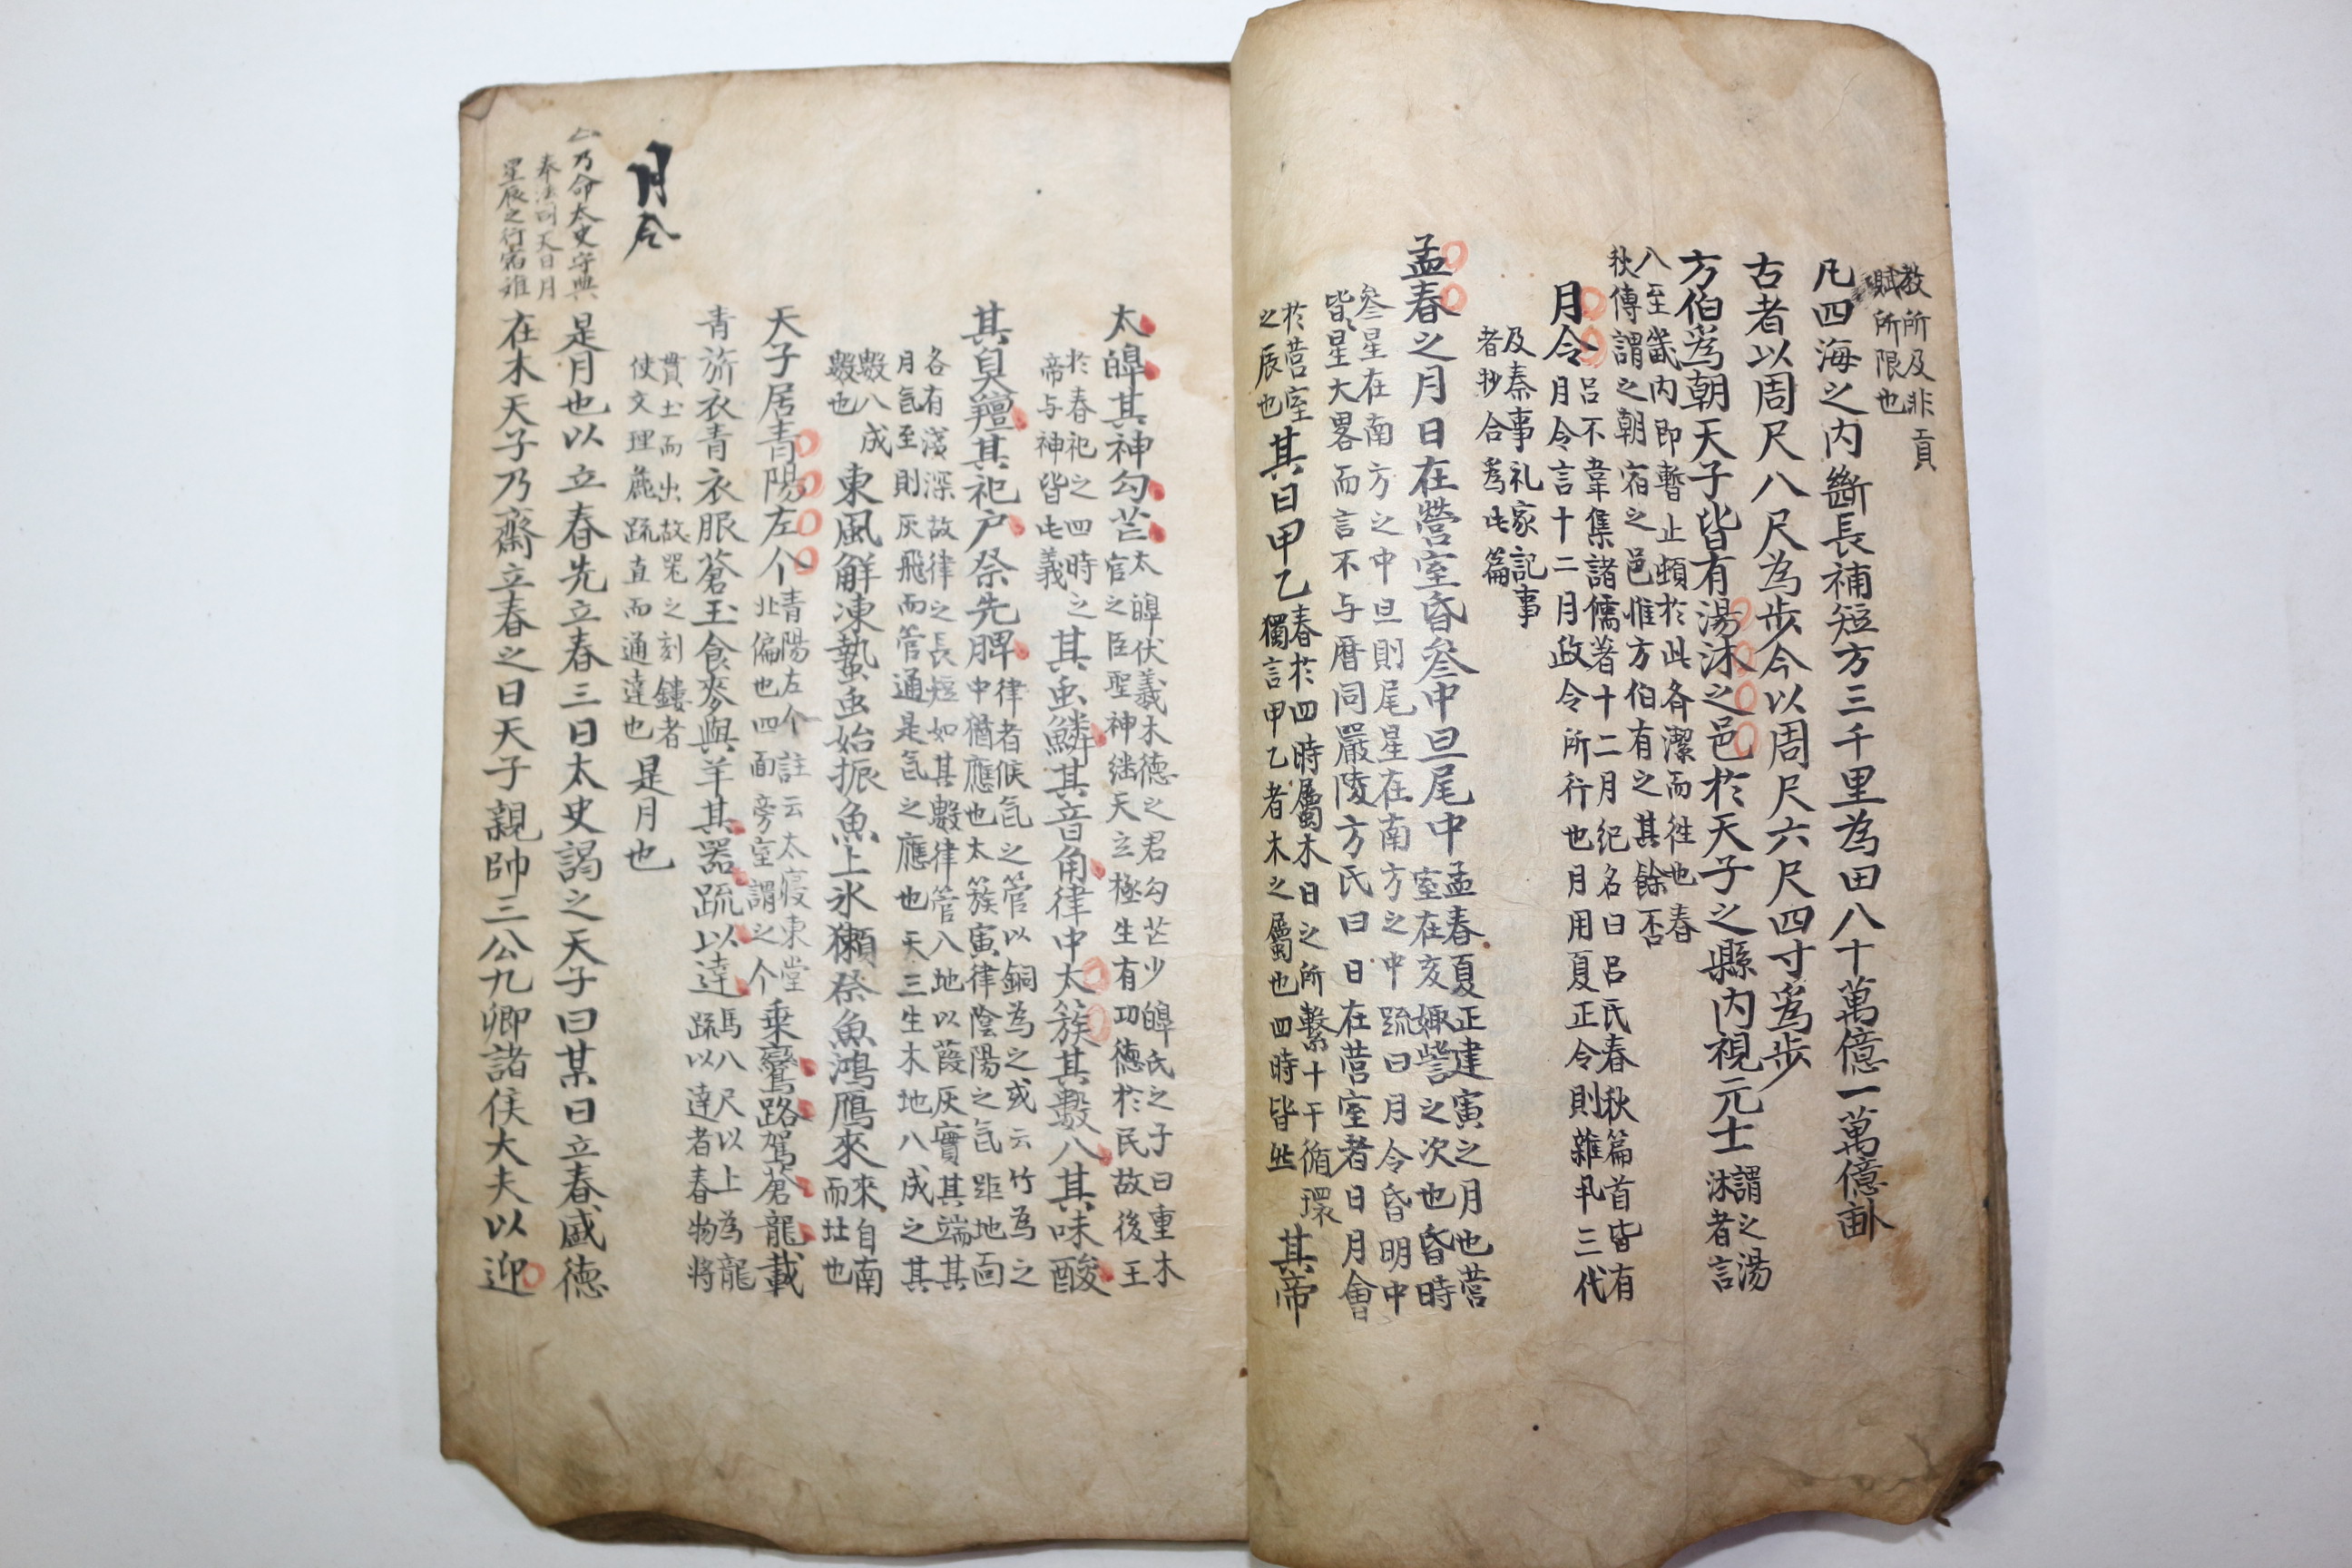 教所及非貢
賦所限也
凡四海之内斷長補短方三千里為田八十萬億一萬億畝
古者以周尺八尺為步今以周尺六尺四寸為步
方伯為朝天子皆有湯沐之邑於天子之縣内視元士
謂之湯
沐者言
八至畿内即暫止頓於此各潔而徃也春
秋傳謂之朝宿之邑惟方伯有之其餘否
月令
呂不韋集諸儒著十二月紀名曰呂氏春秋篇首皆有
月令言十二月政令所行也月用夏正令則雜丮三代
及秦事礼家記事
者抄合為此篇
孟春之月日在營室昏叅中旦尾中
孟春夏正建寅之月也营
室在亥娵訾之次也昏時
叅星在南方之中旦則尾星在南方之中疏曰月令昏明中
皆星大畧而言不与暦同嚴陵方氏曰日在营室者日月會
於营室
之辰也
其日甲乙
春於四時屬木日之所繫十干循環
獨言甲乙者木之屬也四時皆然
其帝
太皥其神勾芒
太皥伏羲木德之君勾芒少皥氏之子曰重木
官之臣聖神继天立極生有功德於民故後王
於春祀之四時之
帝与神皆此義
其虫鱗其音角律中太簇其數八其味酸
其臭羶其祀户祭先脾
律者候氣之管以銅為之或云竹為之
中猶應也太簇寅律陰陽之氣距地面
各有淺深故律之長短如其數律管八地以葭灰實其端其
月氣至則灰飛而管通是氣之應也天三生木地八成之其
數八成
數也
東風鮮凍蟄虫始振魚上氷獺祭魚鴻鴈來
來自南
而北也
天子居青陽左个
青陽左个註云太寢東堂
北偏也四面旁室謂之个
乗鸞路駕蒼龍載
青旂衣青衣服蒼玉食麥與羊其器䟽以達
馬八尺以上為龍
䟽以達者春物將
貫土而出故器之刻鏤者
使文理麁䟽直而通達也
是月也
月令
乃命太史守典
奉法司天日月
星辰之行宿離
是月也以立春先立春三日太史謁之天子曰某日立春盛德
在木天子乃齋立春之日天子親帥三公九卿諸侯大夫以迎